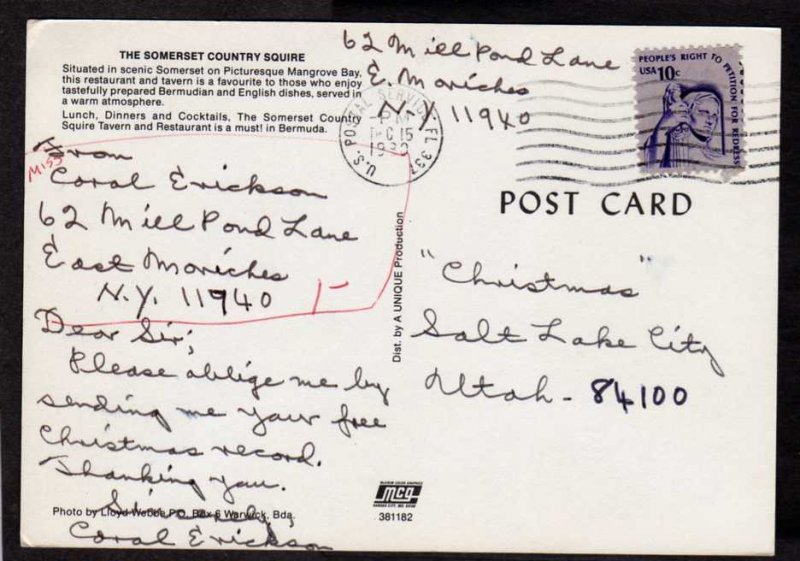 THE SOMERSET COUNTRY SQUIRE
Situated in scenic Somerset on Picturesque Mangrove Bay,
this restaurant and tavern is a favourite to those who enjoy
tastefully prepared Bermudian and English dishes, served in
a warm atmosphere.
Lunch, Dinners and Cocktails, The Somerset Country
Squire Tavern and Restaurant is a must! in Bermuda.
62 Mill Pond Lane
E. Moriches
N.Y. 11940
U.S. POSTAL SERVICE, FL 337
PM
DEC 15
PEOPLE'S RIGHT TO PETITION FOR REDRESS
USA 10c
From
Miss
Coral Erickson
62 Mill Pond Lane
East Moriches
N.Y. 11940
Dear Sir;
Please oblige me by
sending me your free
Christmas record.
Thanking you.
Sincerely
Coral Erickson
Photo by Lloyd Webbe P.O. Box 6 Warwick, Bda.
Dist. by A UNIQUE Production
POST CARD
"Christmas"
Salt Lake City
Utah - 84100
mcg
381182